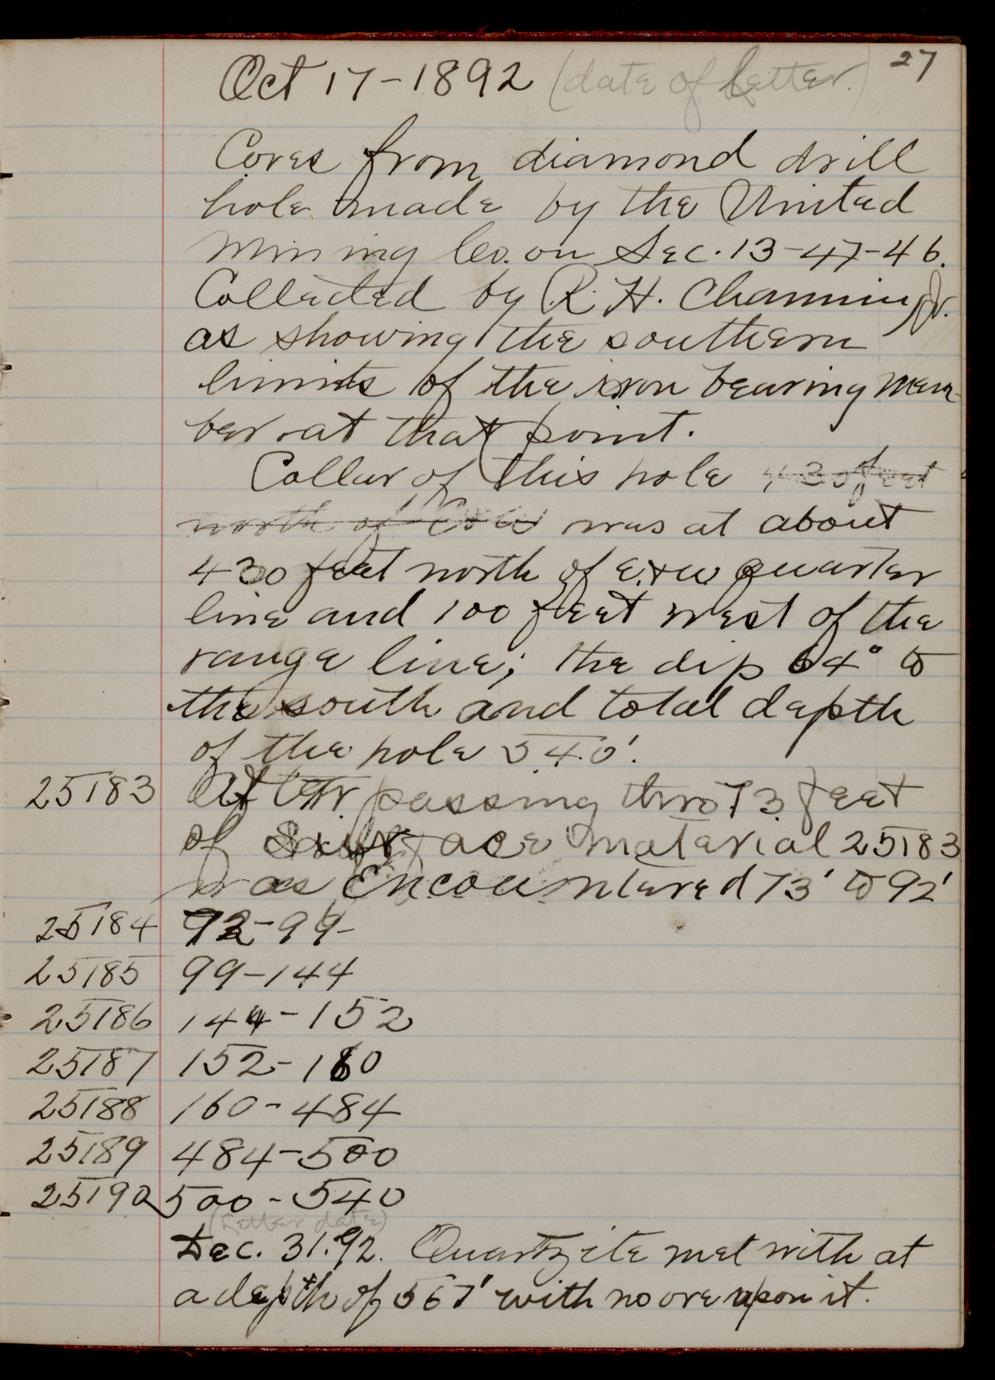 27
Oct 17-1892 (date of letter.)
Cores from diamond drill
hole made by the United
Mining Co. on Sec. 13-47-46.
Collected by R. H. Channing Jr.
as showing the southern
limits of the iron bearing mem-
ber at that point.
Collar of this hole 430 feet
north of E & W was at about
430 feet north of E. & W quarter
line and 100 feet west of the
range line; the dip 64° to
the south and total depth
of the hole 540'.
25183 After passing thro 73 feet
of surface material 25183
was encountered 73' to 92'
25184 92-99-
25185 99-144
25186 144-152
25187 152-160
25188 160-484
25189 484-500
25190 500-540
(Letter date)
Dec. 31. 92. Quartzite met with at
a depth of 567' with no ore upon it.